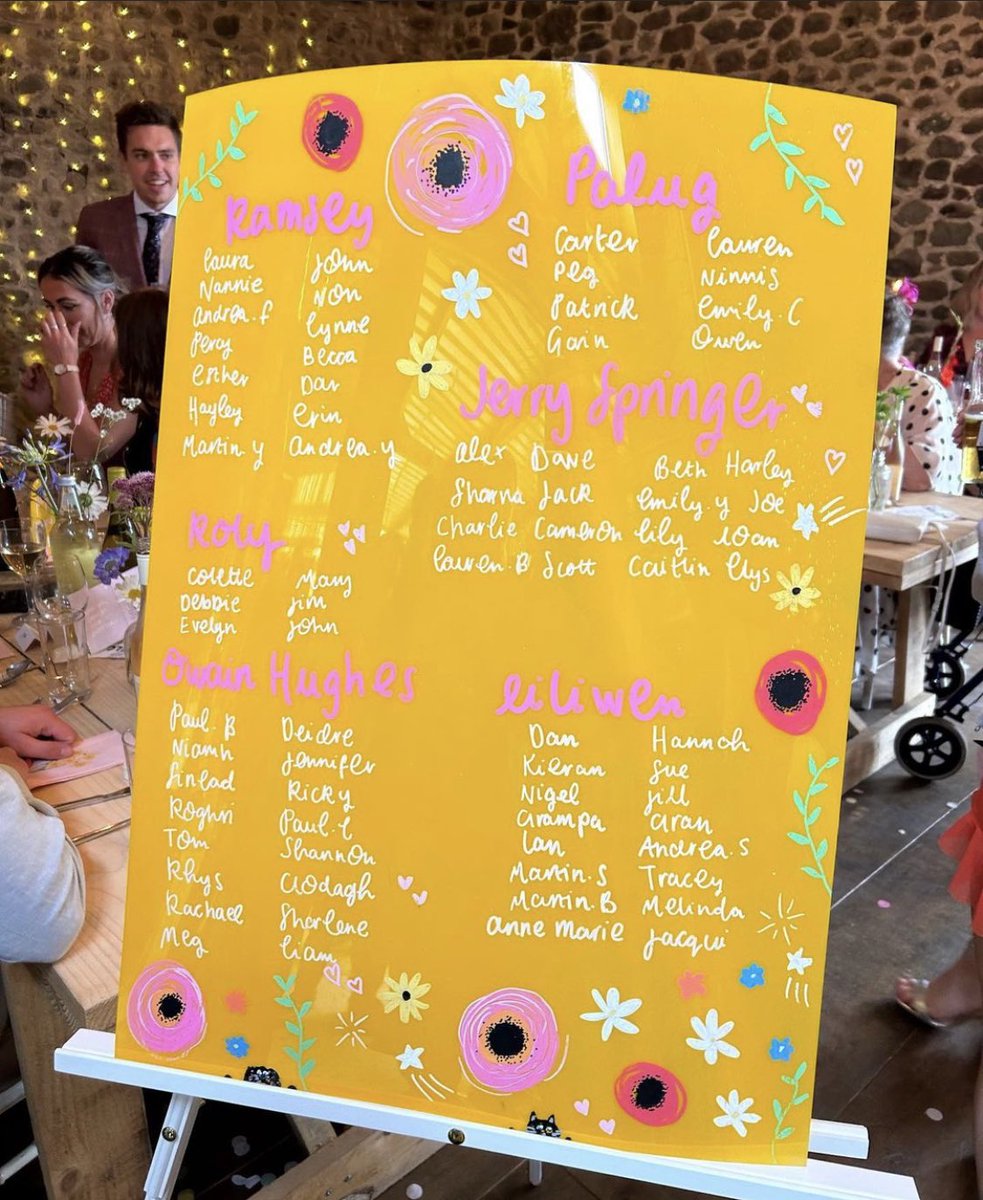 Ramsey
Laura John
Nannie Non
Andrea.f Lynne
Percy Becca
Esther Dar
Hayley Erin
Martin.y Andrea.y
Roly
Colette Mary
Debbie Jim
Evelyn John
Owain Hughes
Paul.B Deidre
Niamh Jennifer
Sinead Ricky
Roghri Paul.L
Tom Shannon
Rhys Clodagh
Rachael Sharlene
Meg Liam
Palug
Carter Lauren
Peg Ninnis
Patrick Emily.C
Gavin Owen
Jerry Springer
Alex Dave Beth Harley
Shanna Jack Emily.y Joe
Charlie Cameron Lily Ioan
Lauren.B Scott Caitlin Elys
Eiliwen
Dan Hannah
Kieran Sue
Nigel Jill
Grampa Gran
Ian Andrea.S
Martin.S Tracey
Martin.B Melinda
Anne Marie Jacqui